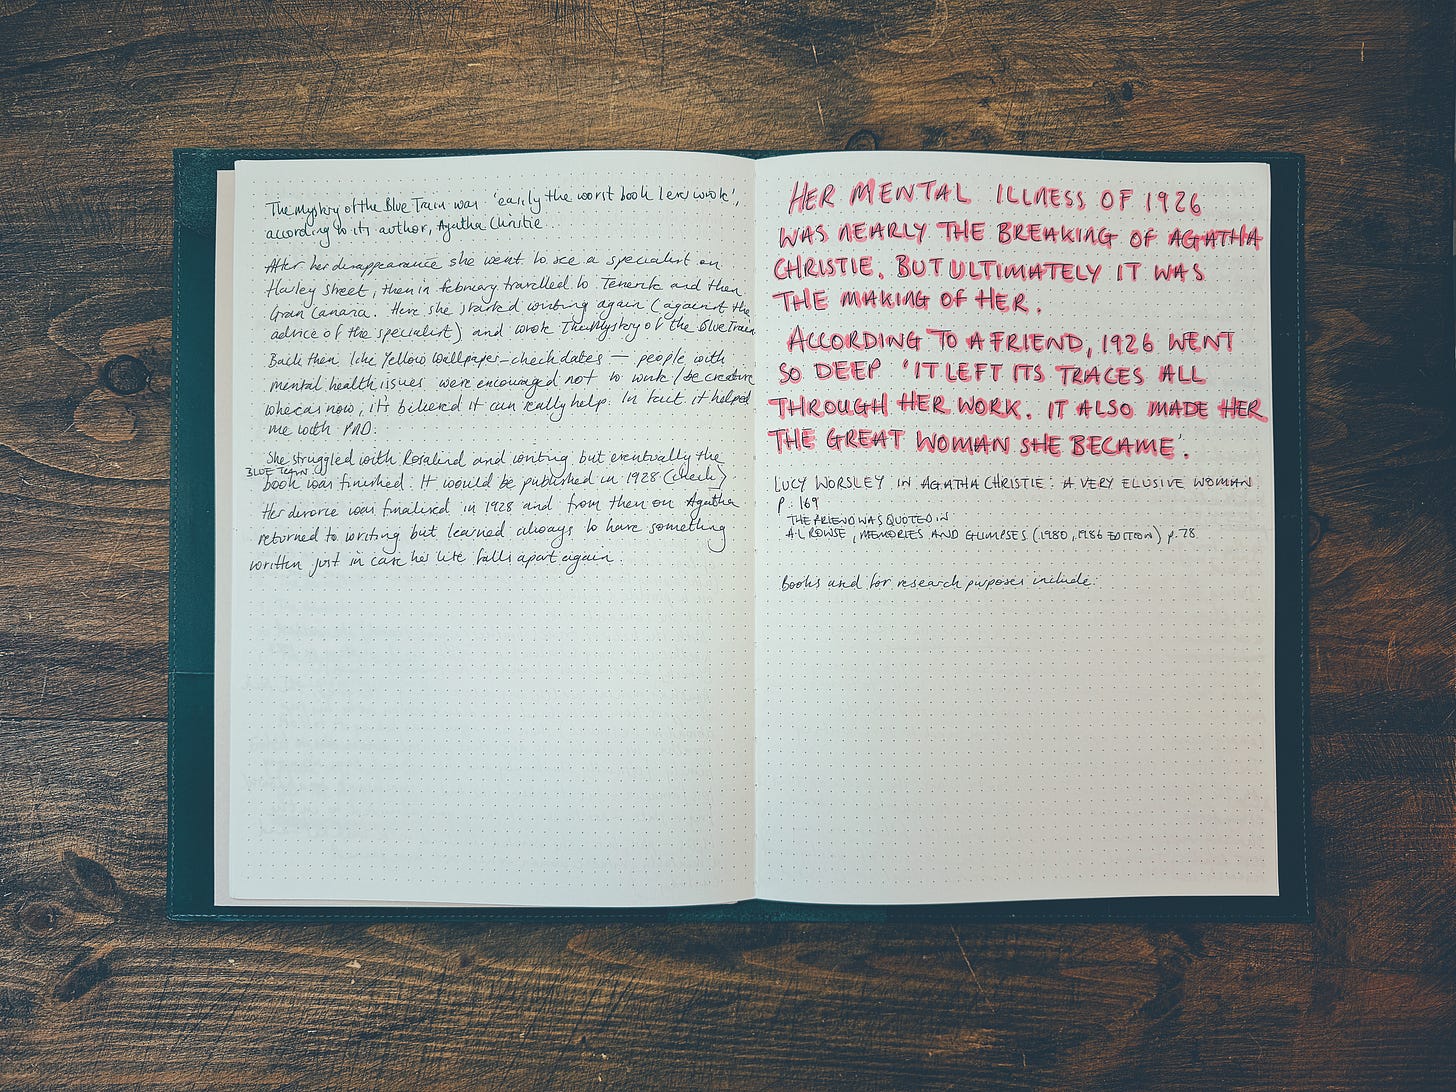 The mystery of the Blue Train was 'easily the worst book I ever wrote',
according to its author, Agatha Christie.
After her disappearance she went to see a specialist on
Harley Street, then in february travelled to Tenerife and then
Gran Canaria. Here she started writing again (against the
advice of the specialist) and wrote The Mystery of the Blue Train
Back then like Yellow Wallpaper - check dates — people with
mental health issues were encouraged not to work / be creative
whereas now, it's believed it can really help. In fact it helped
me with PND.
She struggled with Rosalind and writing but eventually the
BLUE TRAIN
book was finished. It would be published in 1928 (check)
Her divorce was finalised in 1928 and from then on Agatha
returned to writing but learned always to have something
written just in case her life falls apart again.
HER MENTAL ILLNESS OF 1926
WAS NEARLY THE BREAKING OF AGATHA
CHRISTIE. BUT ULTIMATELY IT WAS
THE MAKING OF HER.
ACCORDING TO A FRIEND, 1926 WENT
SO DEEP 'IT LEFT ITS TRACES ALL
THROUGH HER WORK. IT ALSO MADE HER
THE GREAT WOMAN SHE BECAME'.
LUCY WORSLEY IN AGATHA CHRISTIE: A VERY ELUSIVE WOMAN
p. 169
THE FRIEND WAS QUOTED IN
A.L ROWSE, MEMORIES AND GLIMPSES (1980, 1986 EDITION) p. 78
Books used for research purposes include: